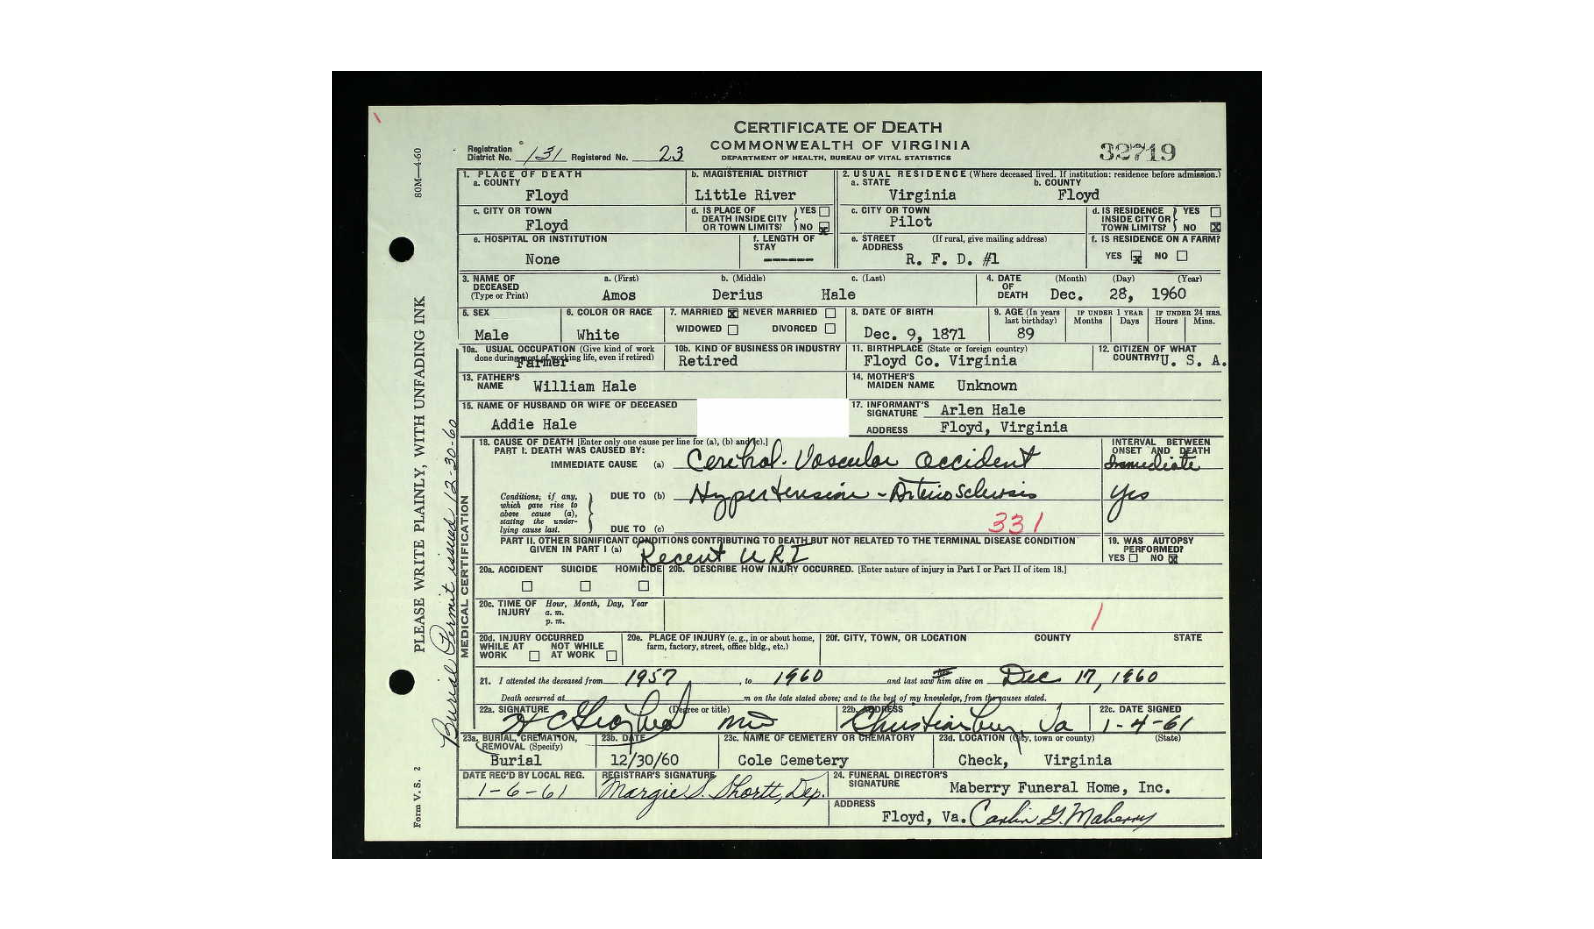 CERTIFICATE OF DEATH
COMMONWEALTH OF VIRGINIA
DEPARTMENT OF HEALTH, BUREAU OF VITAL STATISTICS
Registration District No. 131 Registered No. 23
32719
80M—4-60
PLEASE WRITE PLAINLY, WITH UNFADING INK
Form V. S. 2
Burial Permit issued 12-30-60
1. PLACE OF DEATH
a. COUNTY
Floyd
b. MAGISTERIAL DISTRICT
Little River
2. USUAL RESIDENCE (Where deceased lived. If institution: residence before admission.)
a. STATE
Virginia
b. COUNTY
Floyd
c. CITY OR TOWN
Floyd
d. IS PLACE OF DEATH INSIDE CITY OR TOWN LIMITS? YES NO x
c. CITY OR TOWN
Pilot
d. IS RESIDENCE INSIDE CITY OR TOWN LIMITS? YES NO x
e. HOSPITAL OR INSTITUTION
None
f. LENGTH OF STAY
------
e. STREET ADDRESS (If rural, give mailing address)
R. F. D. #1
f. IS RESIDENCE ON A FARM?
YES x NO
3. NAME OF DECEASED (Type or Print)
a. (First) b. (Middle) c. (Last)
Amos Derius Hale
4. DATE OF DEATH (Month) (Day) (Year)
Dec. 28, 1960
5. SEX
Male
6. COLOR OR RACE
White
7. MARRIED x NEVER MARRIED
WIDOWED DIVORCED
8. DATE OF BIRTH
Dec. 9, 1871
9. AGE (In years last birthday)
89
IF UNDER 1 YEAR
Months Days
IF UNDER 24 HRS.
Hours Mins.
10a. USUAL OCCUPATION (Give kind of work done during most of working life, even if retired)
Farmer
10b. KIND OF BUSINESS OR INDUSTRY
Retired
11. BIRTHPLACE (State or foreign country)
Floyd Co. Virginia
12. CITIZEN OF WHAT COUNTRY? U. S. A.
13. FATHER'S NAME William Hale
14. MOTHER'S MAIDEN NAME Unknown
15. NAME OF HUSBAND OR WIFE OF DECEASED
Addie Hale
17. INFORMANT'S SIGNATURE Arlen Hale
ADDRESS Floyd, Virginia
MEDICAL CERTIFICATION
18. CAUSE OF DEATH [Enter only one cause per line for (a), (b) and (c).]
PART I. DEATH WAS CAUSED BY:
IMMEDIATE CAUSE (a) Cerebral-Vascular Accident
INTERVAL BETWEEN ONSET AND DEATH
Immediate
Conditions, if any, which gave rise to above cause (a), stating the underlying cause last.
DUE TO (b) Hypertension - Arteriosclerosis
yes
DUE TO (c)
331
PART II. OTHER SIGNIFICANT CONDITIONS CONTRIBUTING TO DEATH BUT NOT RELATED TO THE TERMINAL DISEASE CONDITION GIVEN IN PART I (a)
Recent URI
19. WAS AUTOPSY PERFORMED?
YES NO x
20a. ACCIDENT SUICIDE HOMICIDE
20b. DESCRIBE HOW INJURY OCCURRED. [Enter nature of injury in Part I or Part II of item 18.]
20c. TIME OF INJURY Hour, Month, Day, Year
a. m.
p. m.
20d. INJURY OCCURRED
WHILE AT WORK NOT WHILE AT WORK
20e. PLACE OF INJURY (e. g., in or about home, farm, factory, street, office bldg., etc.)
20f. CITY, TOWN, OR LOCATION COUNTY STATE
21. I attended the deceased from 1957, to 1960 and last saw him alive on Dec 17, 1960
Death occurred at m on the date stated above; and to the best of my knowledge, from the causes stated.
22a. SIGNATURE (Degree or title)
MD
22b. ADDRESS
Christiansburg, Va
22c. DATE SIGNED
1-4-61
23a. BURIAL, CREMATION, REMOVAL (Specify)
Burial
23b. DATE
12/30/60
23c. NAME OF CEMETERY OR CREMATORY
Cole Cemetery
23d. LOCATION (City, town or county) (State)
Check, Virginia
DATE REC'D BY LOCAL REG.
1-6-61
REGISTRAR'S SIGNATURE
Margie S. Shortt, Dep.
24. FUNERAL DIRECTOR'S SIGNATURE
Maberry Funeral Home, Inc.
ADDRESS
Floyd, Va. Carlin G. Maberry